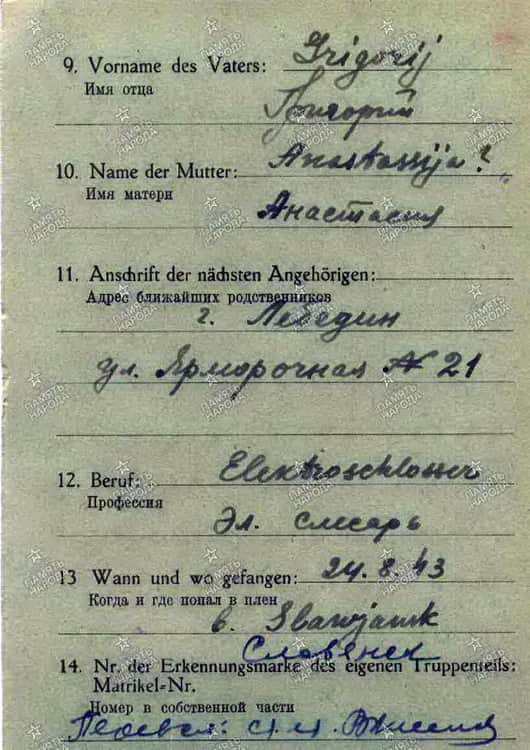 9. Vorname des Vaters: Grigorij
Имя отца
Григорий
10. Name der Mutter: Anastassija?
Имя матери
Анастасия
11. Anschrift der nächsten Angehörigen:
Адрес ближайших родственников
г. Лебедин
ул. Ярморочная № 21
12. Beruf: Elektroschlosser
Профессия
Эл. слесарь
13 Wann und wo gefangen: 24.8.43
Когда и где попал в плен
b. Slawjansk
Славенск
14. Nr. der Erkennungsmarke des eigenen Truppenteils:
Matrikel=Nr.
Номер в собственной части